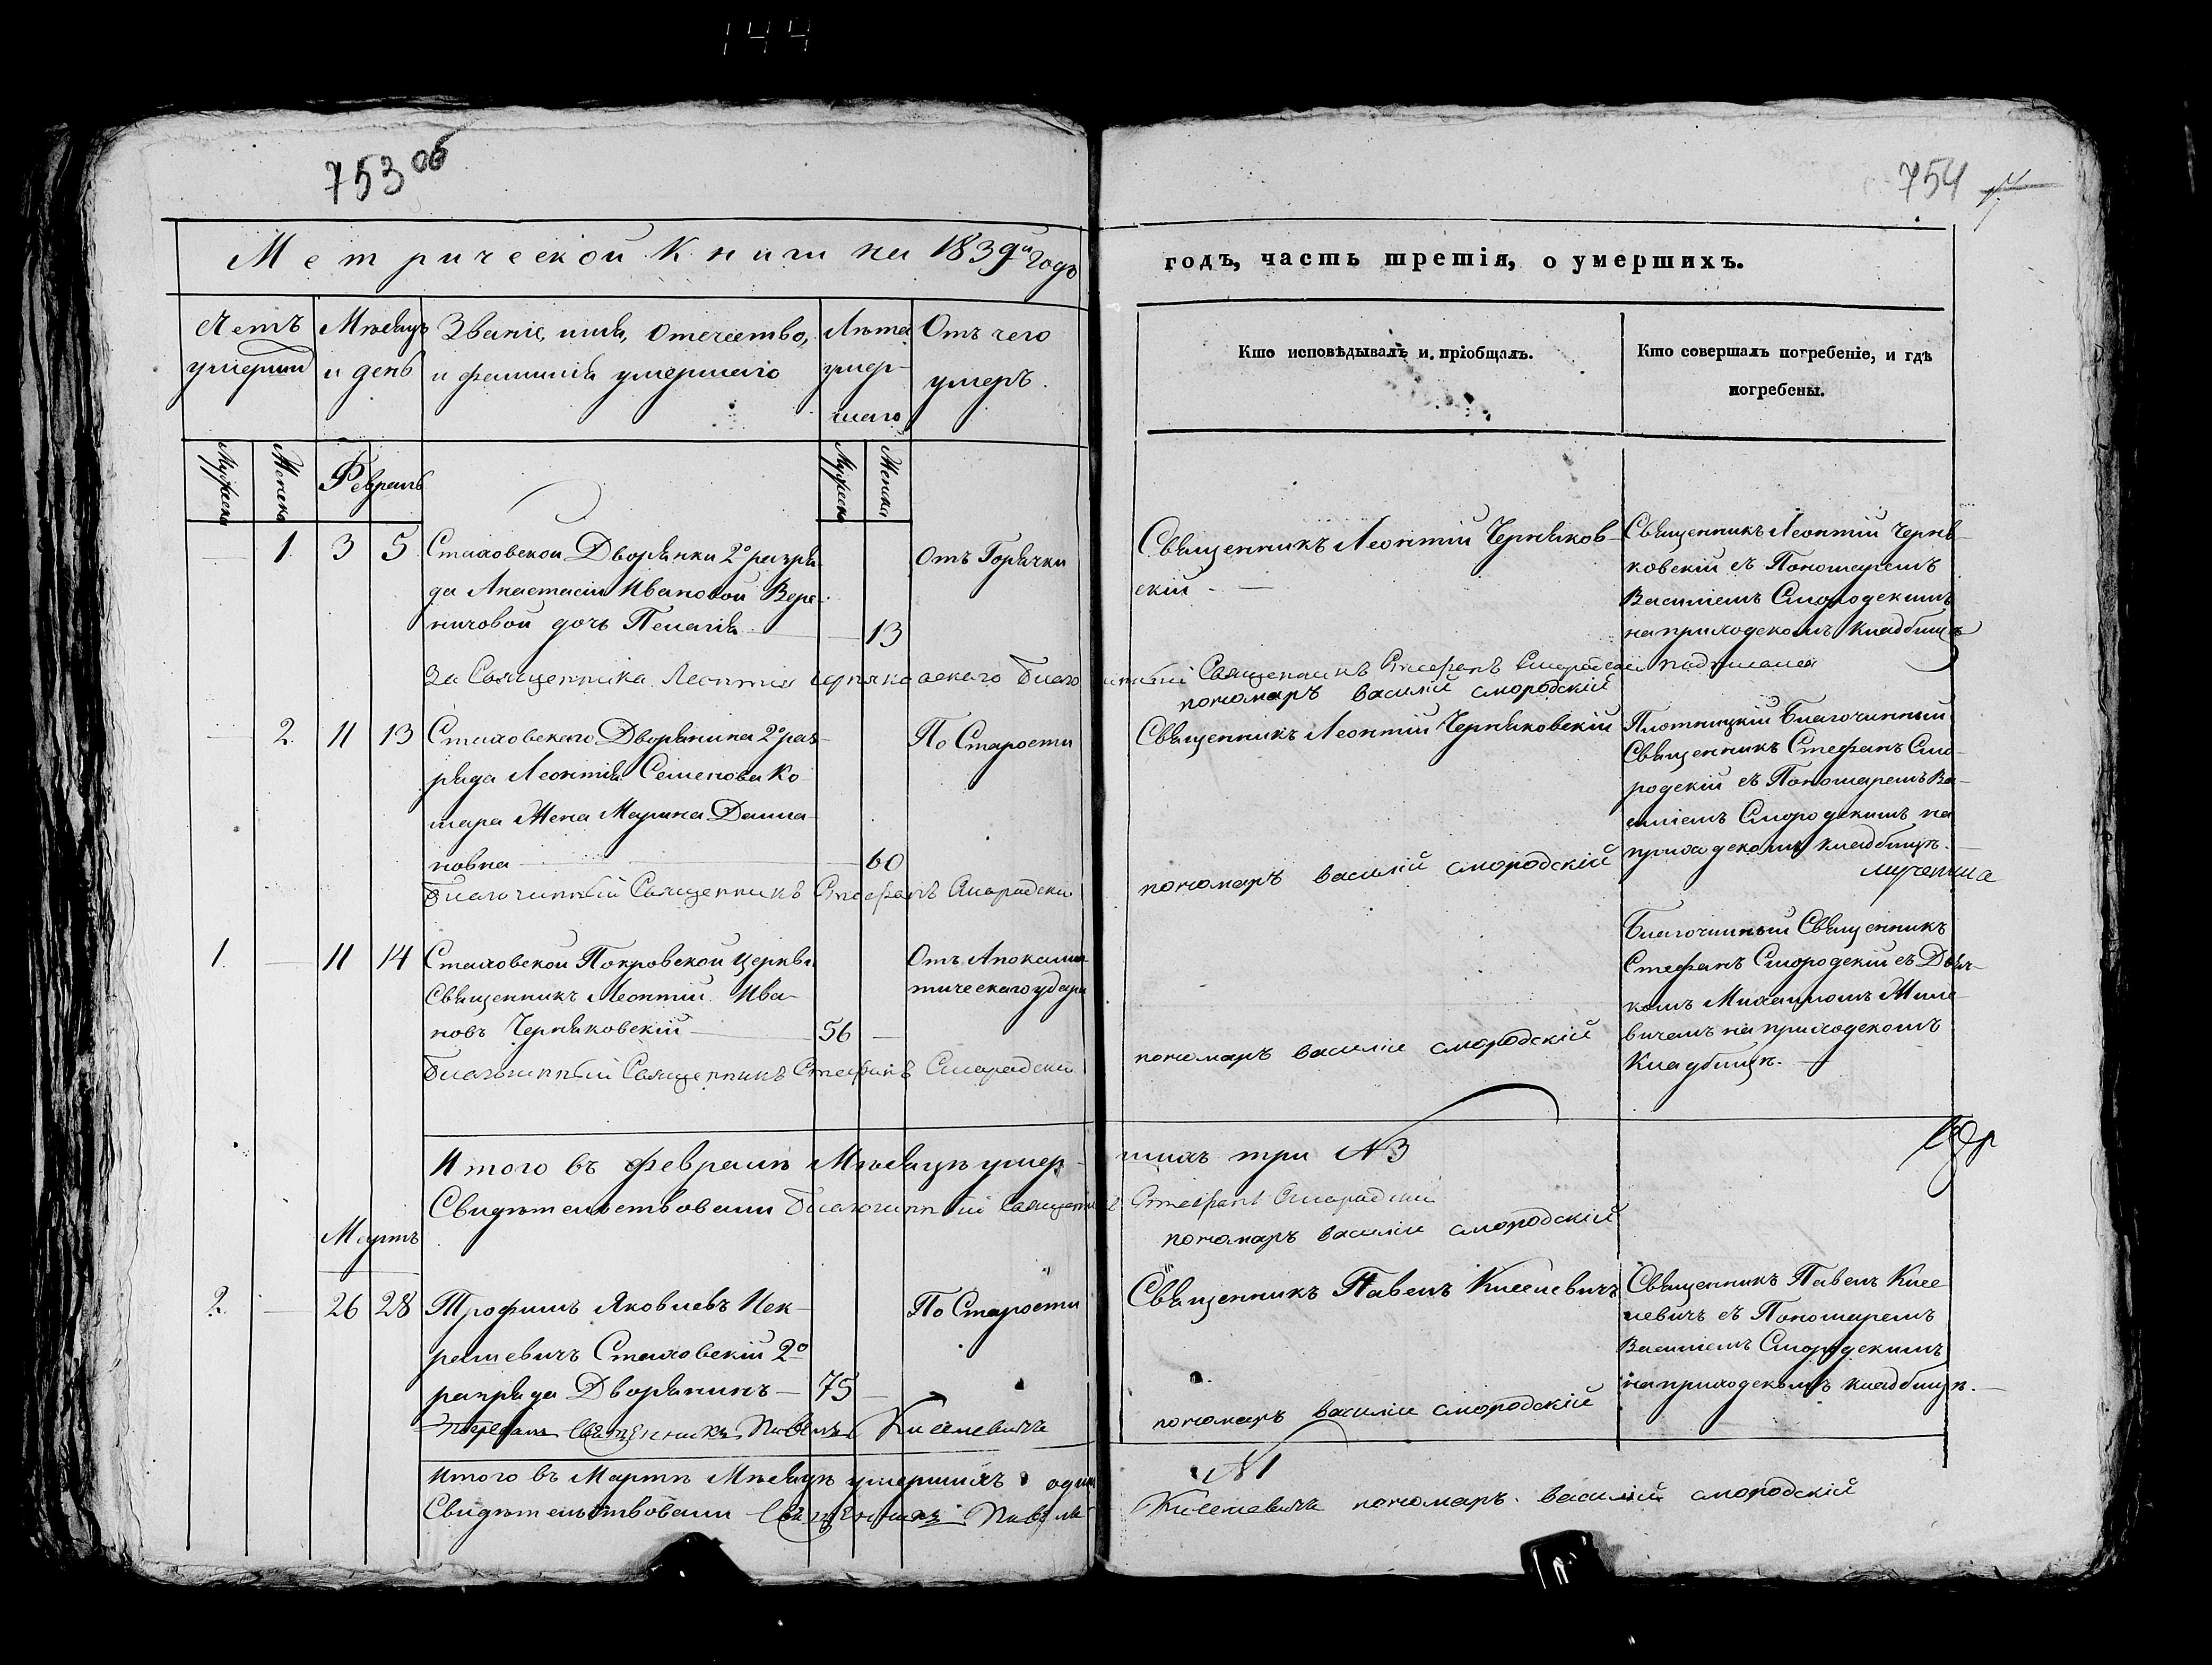 144
753 об
754
Метрической Книги на 1839й Годъ
годъ, часть третія, о умершихъ.
Счетъ умерши
Мѣсяцъ и день
Званіе, имя, отечество, и фамилія умершаго
Лѣта умер-
шаго
Отъ чего умеръ.
Кто исповѣдывалъ и пріобщалъ.
Кто совершалъ погребеніе, и гдѣ
погребены.
Мужеска
Женска
Февраль
Мужеска
Женска
1. 3 5
Стаховской Дворянки 2º разря-
да Анастасіи Ивановой Вере-
ничовой дочь Пелагія 13
Отъ Горячки
Священникъ Леонтій Черняков-
скій
Священникъ Леонтій Черня-
ковскій съ Пономаремъ
Василіемъ Смородскимъ
на приходскомъ кладбищѣ
За Священника Леонтія Черняковского Благочинный Священникъ Стефанъ Смородскій подписался
пономаръ василій смородскій
2. 11 13
Стаховского Дворянина 2º раз-
ряда Леонтія Семенова Ко-
мара Жена Марина Дамиа-
новна 60
По Старости
Священникъ Леонтій Черняковскій
Плотницкій Благочинный
Священникъ Стефанъ Смо-
родскій съ Пономаремъ Ва-
силіемъ Смородскимъ на
приходскомъ кладбищѣ.
Благочинный Священникъ Стефанъ Смородскій
пономаръ василій смородскій
1. 11 14
Стаховской Покровской Церкви
Священникъ Леонтій Ива-
новъ Черняковскій 56
Отъ Апокалип-
тическаго удара
Благочинный Священникъ
Стефанъ Смородскій съ Дья-
комъ Михаиломъ Жиле-
вичемъ на приходскомъ
Кладбищѣ.
Благочинный Священникъ Стефанъ Смородскій
пономаръ василій смородскій
Итого въ февралѣ Мѣсяцѣ умер-шихъ три №3
Свидѣтельствовали Благочинный Священникъ Стефанъ Смородскій
пономаръ василій смородскій
Мартъ
2. 26 28
Трофимъ Яковлевъ Нек-
рашевичъ Стаховскій 2º
разряда Дворянинъ 75
По Старости
Священникъ Павелъ Киселевичъ
Священникъ Павелъ Кисе
левичъ съ Пономаремъ
Василіемъ Смородскимъ
на приходскомъ кладбищѣ.
Священникъ Павелъ Киселевичъ
пономаръ василій смородскій
Итого въ Мартѣ Мѣсяцѣ умершихъ одинъ №1
Свидѣтельствовали Священникъ Павелъ Киселевичъ пономаръ василій смородскій